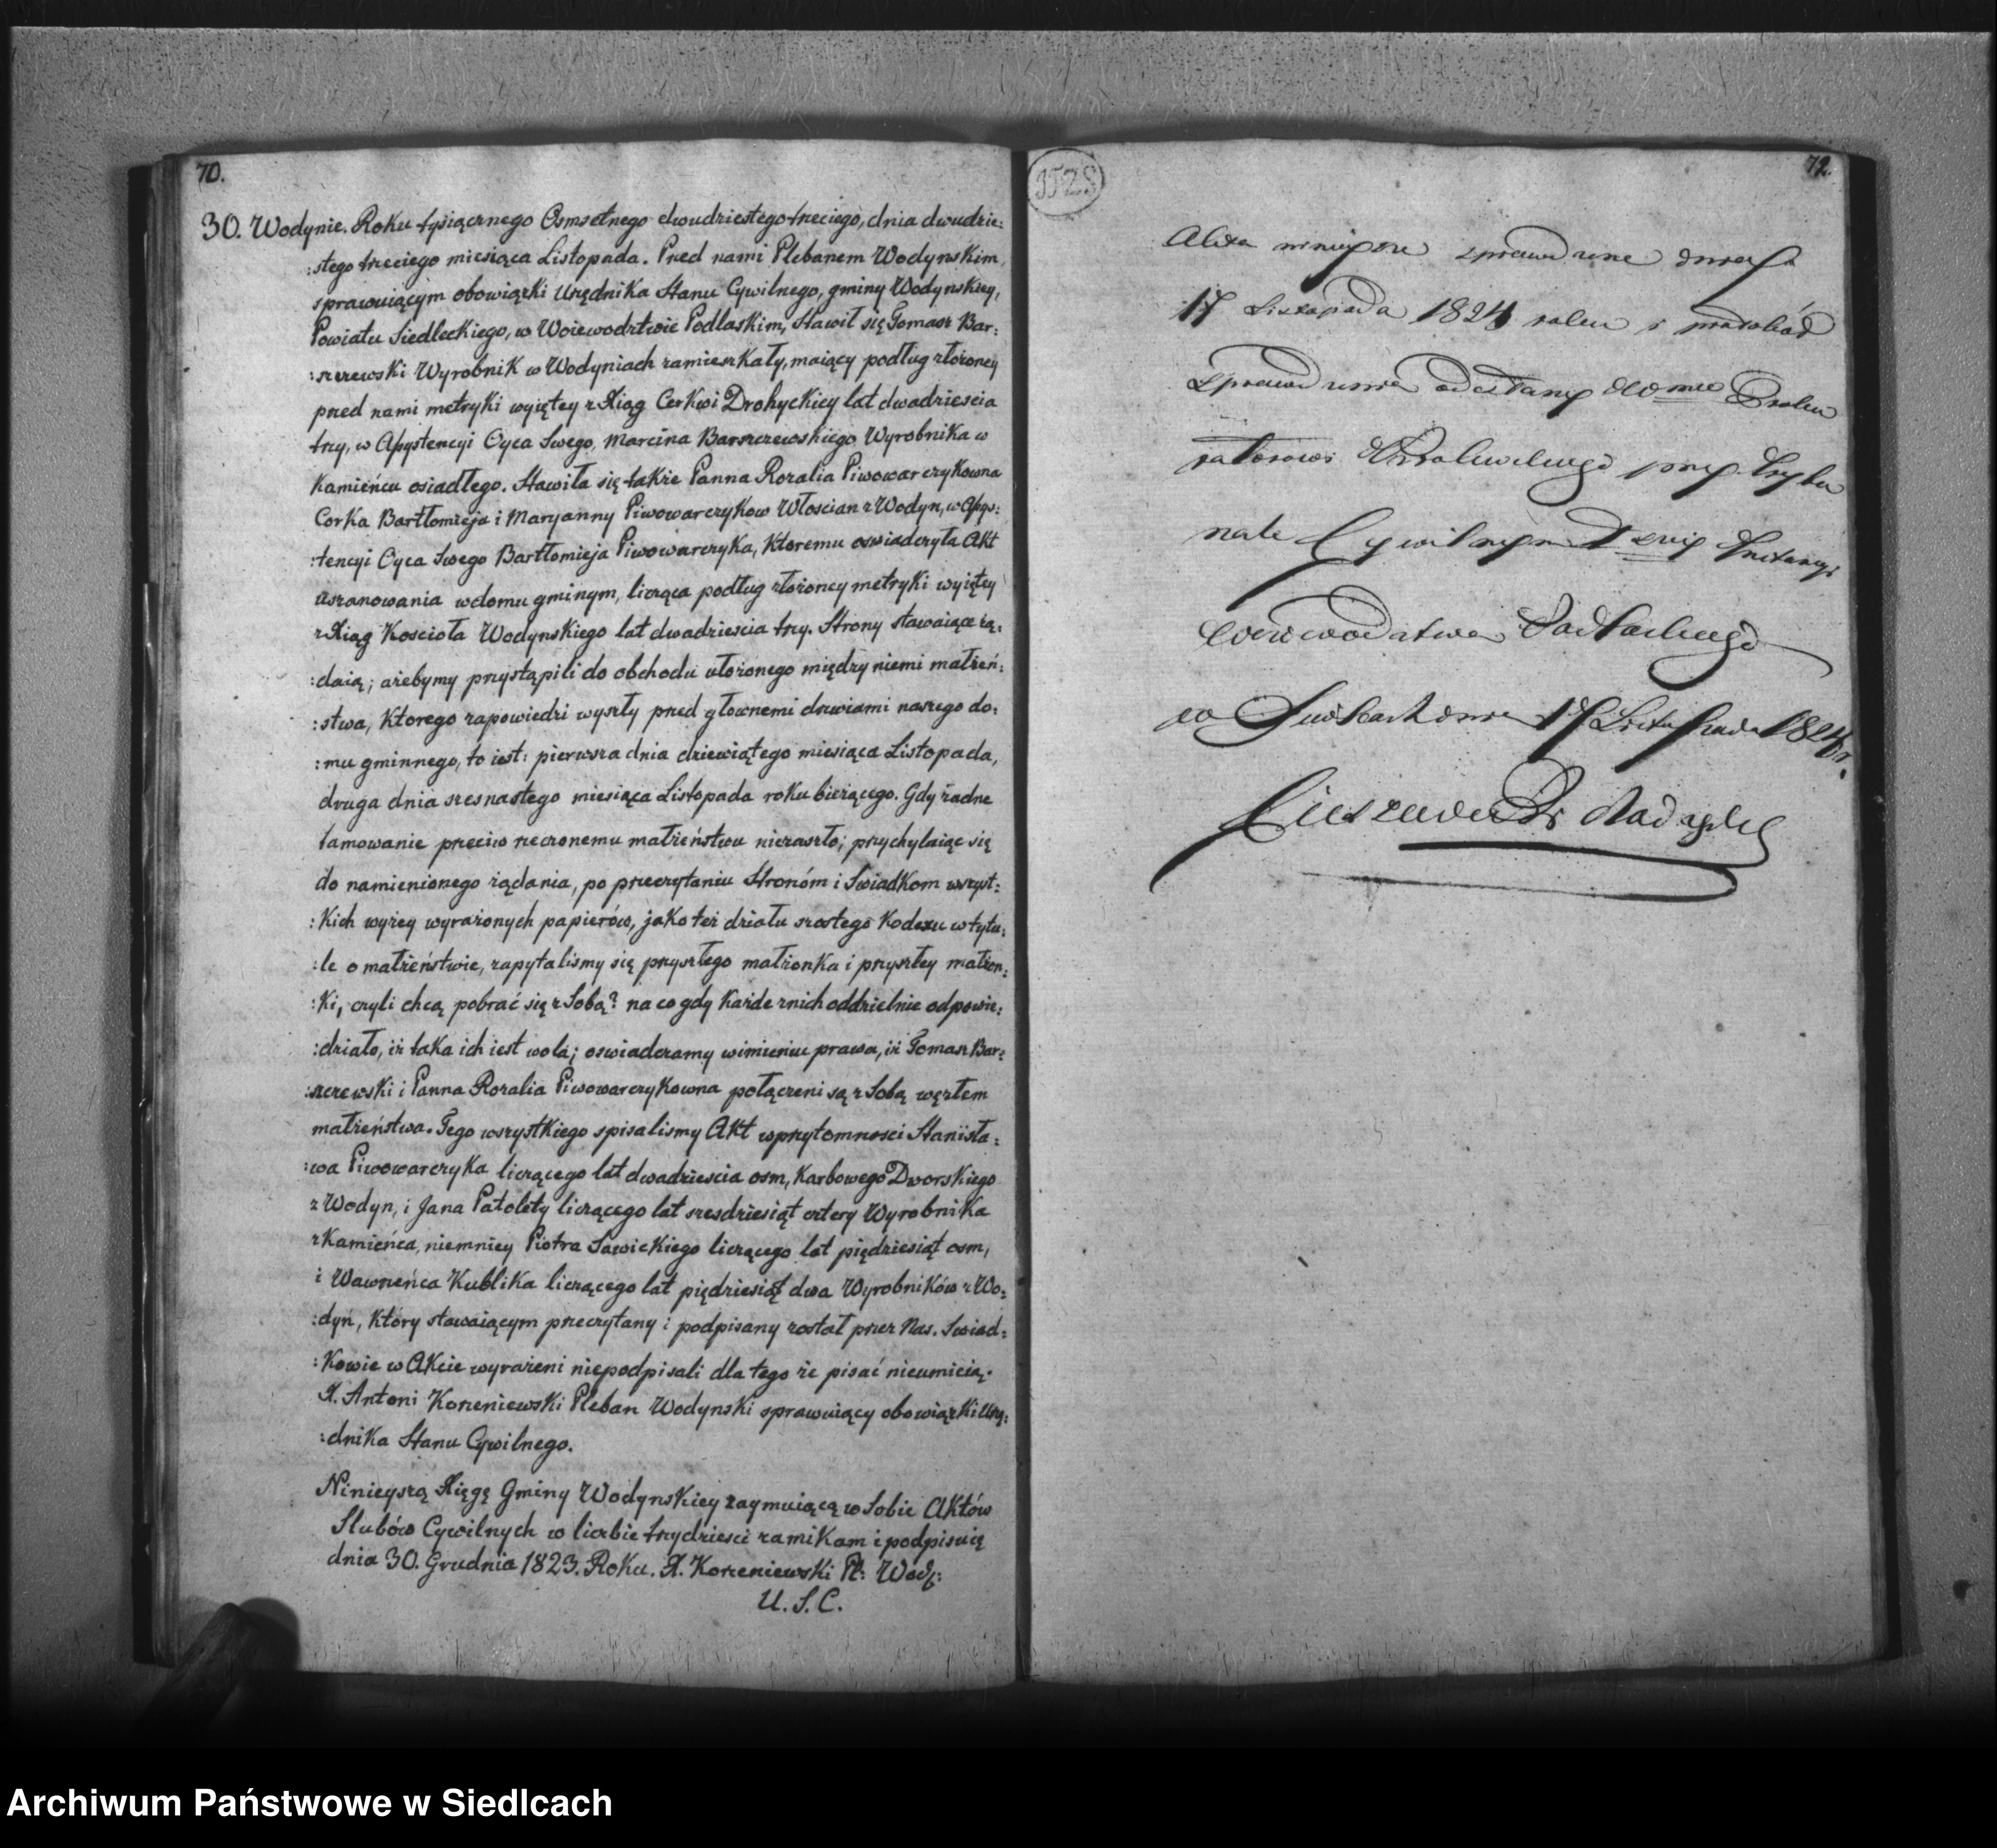 70.
30. Wodynie. Roku tysiącznego Osmsetnego dwudziestego trzeciego, dnia dwudzie:
:stego trzeciego miesiąca Listopada. Przed nami Plebanem Wodynskim,
sprawuiącym obowiązki Urzędnika Stanu Cywilnego, gminy Wodynskiey,
Powiatu Siedleckiego, w Woiewodztwie Podlaskim, Stawił się Tomasz Bar:
:szczewski Wyrobnik w Wodyniach zamieszkały, maiący podług złożoney
przed nami metryki wyiętey z Xiąg Cerkwi Drohyckiey lat dwadziescia
trzy, w Assystencyi Oyca Swego, Marcina Barszczewskiego Wyrobnika w
Kamieńcu osiadłego. Stawiła się także Panna Rozalia Piwowarczykowna
Corka Bartłomieja i Maryanny Piwowarczykow Włoscian z Wodyn, w Assys:
:tencyi Oyca Swego Bartłomieja Piwowarczyka, Ktoremu oswiadczyła Akt
uszanowania w domu gminym, licząca podług złożoney metryki wyiętey
z Xiąg Koscioła Wodynskiego lat dwadziescia trzy. Strony stawaiące żą:
:daią; ażebymy przystąpili do obchodu ułożonego między niemi małżeń:
:stwa, Ktorego zapowiedzi wyszły przed głownemi drzwiami naszego do:
:mu gminnego, to iest: pierwsza dnia dziewiątego miesiąca Listopada,
druga dnia szesnastego miesiąca Listopada roku bieżącego. Gdy żadne
tamowanie przeciw rzeczonemu małżeństwu niezaszło; przychylaiąc się
do namienionego żądania, po przeczytaniu Stronóm i Swiadkom wszyst:
:Kich wyżey wyrażonych papierów, jako też działu szostego Kodexu w tytu:
:le o małżeństwie, zapytalismy się przyszłego małżonka i przyszłey małżon:
:Ki, czyli chcą pobrać się z Sobą? na co gdy Każde z nich oddzielnie odpowie:
:działo, iż taka ich iest wola; oswiadczamy w imieniu prawa, iż Tomasz Bar:
:szczewski i Panna Rozalia Piwowarczykowna połączeni są z Sobą węzłem
małżeństwa. Tego wszystkiego spisalismy Akt w przytomnosci Stanisła:
:wa Piwowarczyka liczącego lat dwadziescia osm, Karbowego Dworskiego
z Wodyn, i Jana Patolety liczącego lat szesdziesiąt cztery Wyrobnika
z Kamieńca, niemniey Piotra Sawickiego liczącego lat piędziesiąt osm,
i Wawrzeńca Kublika liczącego lat piędziesiąt dwa Wyrobników z Wo:
:dyń, Który stawaiącym przeczytany i podpisany został przez Nas. Swiad:
:Kowie w Akcie wyrażeni niepodpisali dla tego że pisać nieumieią.
X. Antoni Korzeniewski Pleban Wodynski sprawuiący obowiązki Urzę:
:dnika Stanu Cywilnego.
Ninieyszą Xięgę Gminy Wodynskiey zaymuiącą w Sobie Aktów
Slubów Cywilnych w liczbie trzydziesci zamikam i podpisuię
dnia 30. Grudnia 1823. Roku. X. Korzeniewski Pl: Wod:
U. S. C.
72.
Akta ninieysze sprawdzone dniа
17 Listopada 1824 roku i protokół
sprawdzenia odesłany
Królewskiego przy Trybu
nale Cywilnym I
Woiewodztwa Podlaskiego
17 Listopada 1824 r.
Archiwum Państwowe w Siedlcach